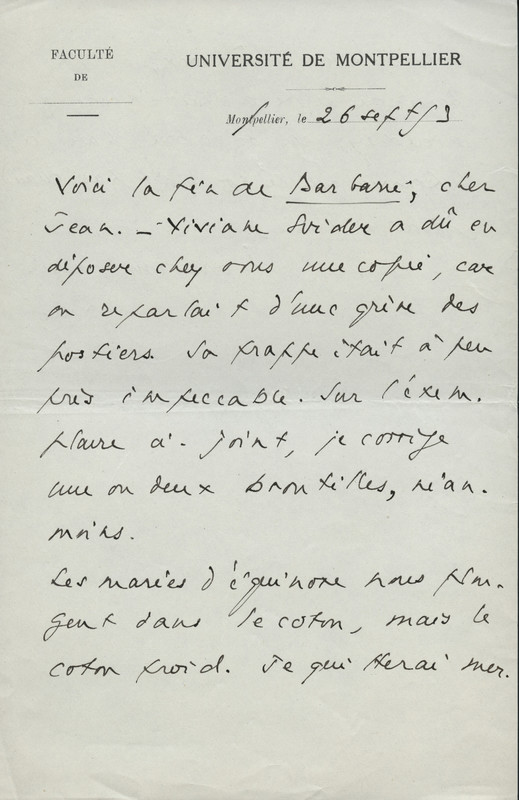 FACULTÉ
DE
UNIVERSITÉ DE MONTPELLIER
Montpellier, le 26 sept 53
Voici la fin de Barbarie, cher
Jean. – Viviane Svider a dû en
déposer chez vous une copie, car
on reparlait d'une grève des
postiers. Sa frappe était à peu
près impeccable. Sur l'exem-
plaire ci-joint, je corrige
une ou deux broutilles, néan-
moins.
Les marées d'équinoxe nous plon-
gent dans le coton, mais le
coton froid. Je quitterai mer.